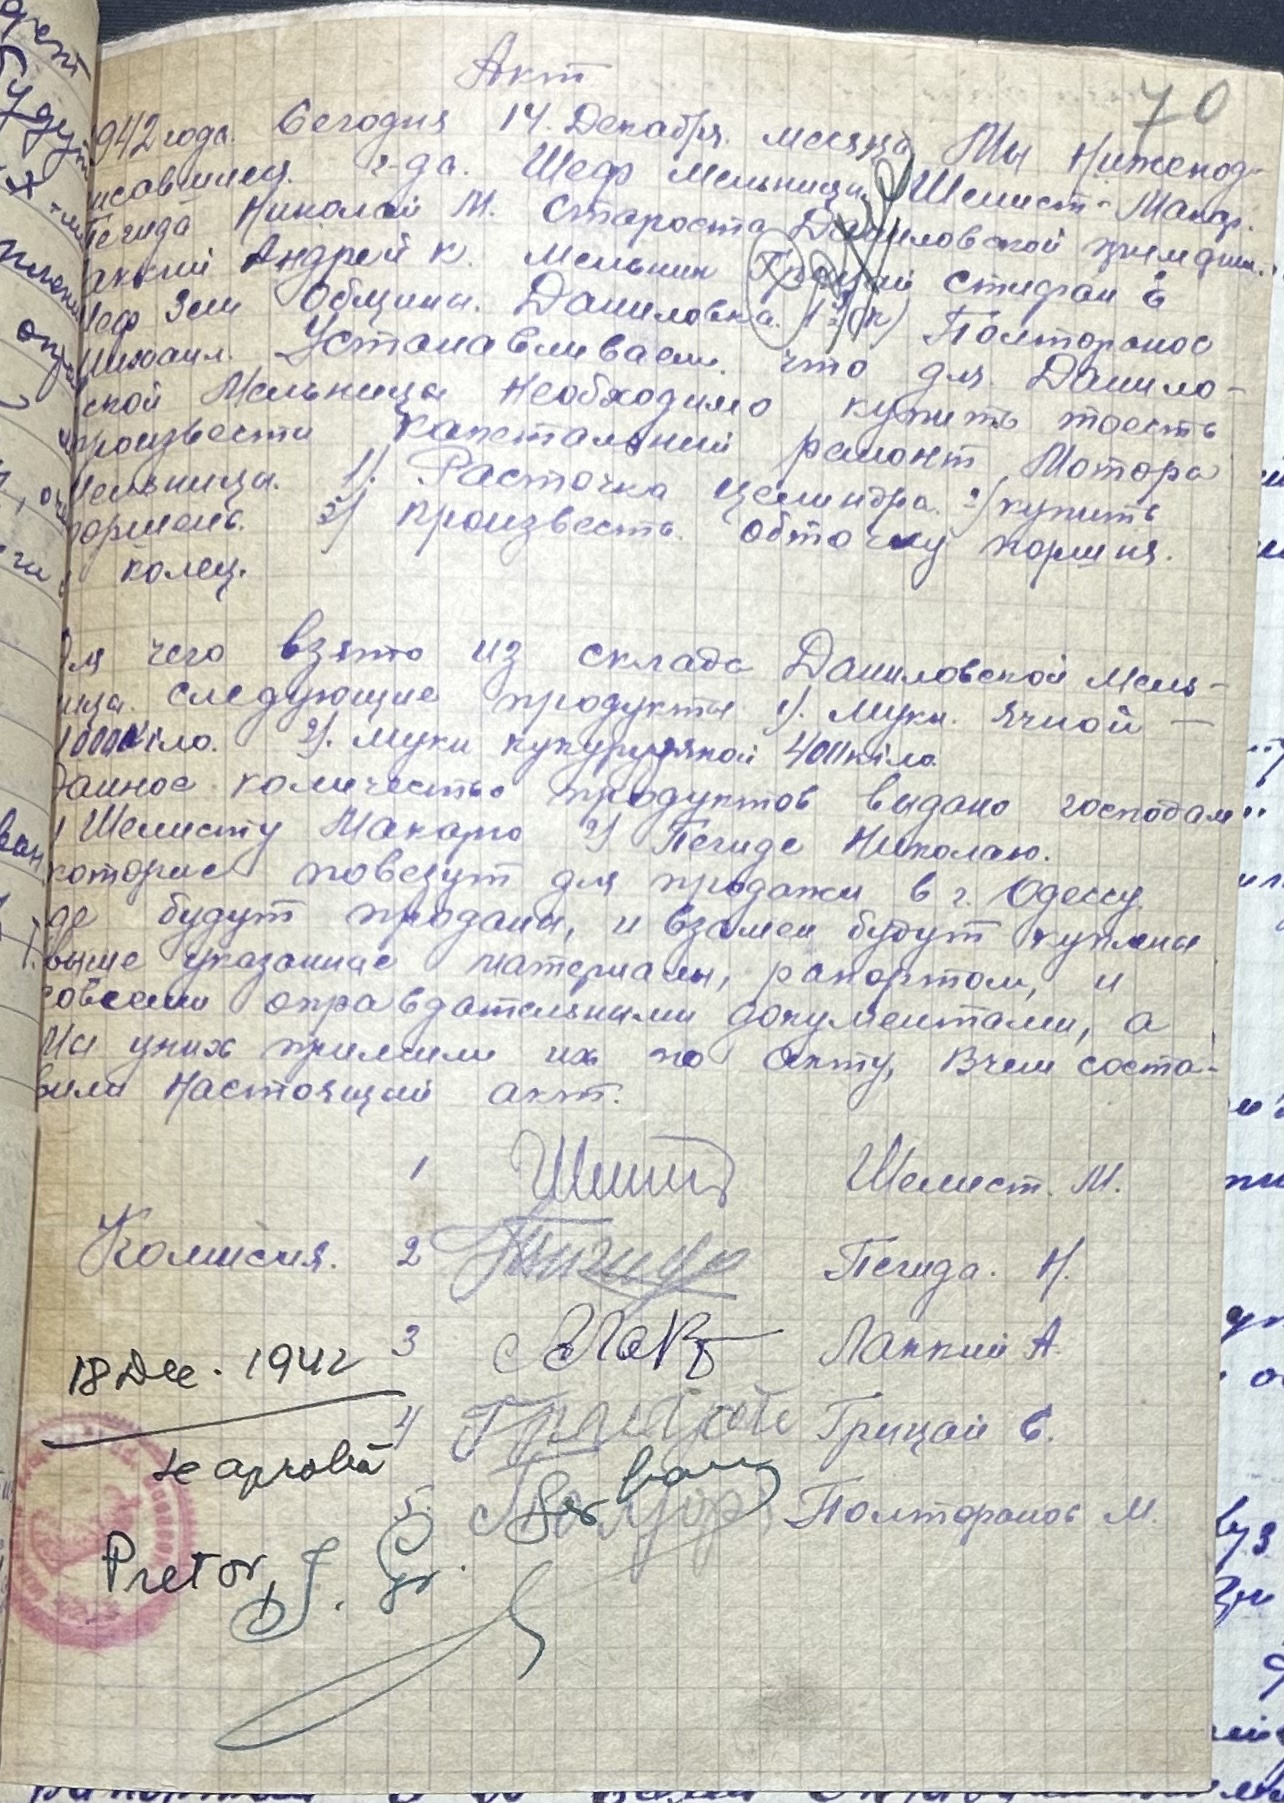 70
Акт
942 года. Сегодня 14. Декабря. месяца Мы Нижепод-
исавшиеся. г-да. Шеф мельницы Шелист Макар.
Пегида Николай М. Староста Даниловской
Андрей К. Мельник Грицай Стифан и
Шеф Зем Община. Даниловка. Полторанос
Михаил. Устанавливаем. что для Данило-
ской Мельницы необходимо купить тоесть
произвести капетальний рамонт Мотора
мельница. 1). Расточка целиндра. 2) купить
поршень. 3) произвесть. обточку поршня.
и колец.
Для чего взято из склада Даниловской Мель-
ница. следующие продукты 1). Муки. ячной —
1000 кіло. 2). Муки кукурузяной 400 кіло.
Данное количество продуктов выдано господам:
1 Шелисту Макару 2) Пегиде Николаю.
которие повезут для продажи в г. Одессу.
где будут проданы, и взамен будут куплены
выше указанние материалы, рапортом, и
совсеми оправдательними документами, а
Мы уних примем их по акту, Вчем соста-
вили Настоящий акт.
1 Шелист. М.
Комисия. 2 Пегида. Н.
3 Лапкий А.
18 Dec. 1942
4 Грицай Грицай С.
se aprobă
5. Полторанос М.
Pretor,